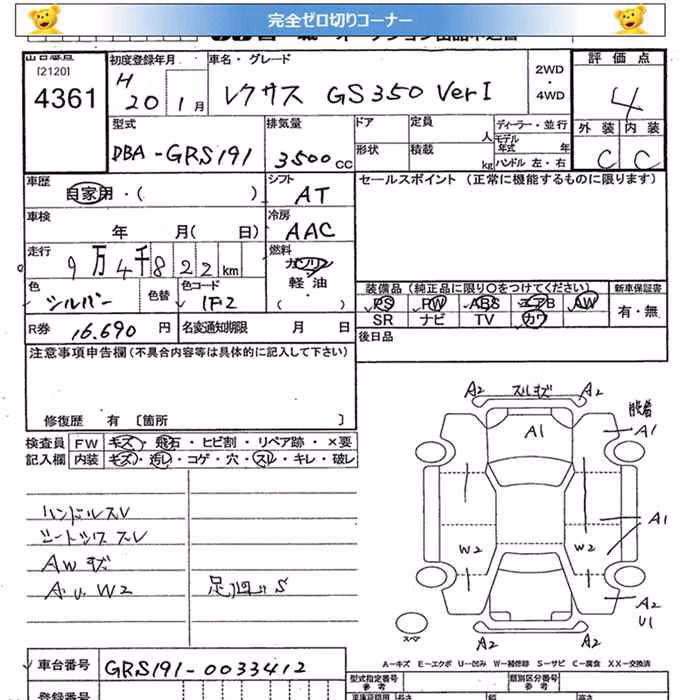 完全ゼロ切りコーナー
[2120]
4361
初度登録年月
H 20 1月
車名・グレード
レクサス GS350 Ver I
2WD
・
4WD
評価点
4
外装 内装
C C
型式
DBA-GRS191
排気量
3500cc
ドア
定員
人
形状
積載
kg
ディーラー・並行
モデル年式 年
ハンドル 左・右
車歴
自家用・( )
シフト
AT
セールスポイント (正常に機能するものに限ります)
車検
年 月( 日)
冷房
AAC
走行
9万4千822km
燃料
ガソリン
軽油
( )
色
シルバー
色替
色コード
1F2
装備品(純正品に限り○をつけてください)
新車保証書
PS PW ABS エアB AW
SR ナビ TV カワ
有・無
R券 16.690円
名変通知期限 月 日
後日品
注意事項申告欄(不具合内容等は具体的に記入して下さい)
修復歴 有 [箇所 ]
検査員
記入欄
FW キズ・飛石・ヒビ割・リペア跡・×要
内装 キズ・汚レ・コゲ・穴・スレ・キレ・破レ
ハンドルスレ
シートシワ スレ
AWキズ
A U W2
足回りS
A2 スルキズ A2
A1
A1
A1
W2
W2
A2
U1
A2 A2
スペア
A-キズ E-エクボ U-凹み W-補修跡 S-サビ C-腐食 XX-交換済
車台番号
GRS191-0033412
型式指定番号
参考
類別区分番号
参考
登録番号
長さ
幅
高さ